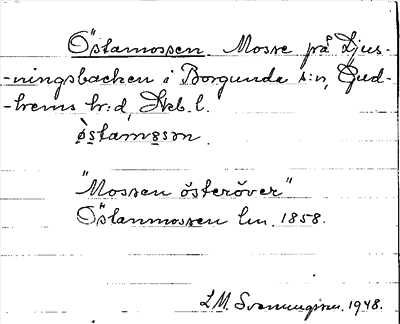 Östamossen. Mosse på Ljus-
-ningsbacken i Borgunda s:n, Gud-
-hems hr:d, Skb. l.
östamåsən.
"Mossen österöver"
Östanmossen lm. 1858.
L.M. Svenungsson. 1948.